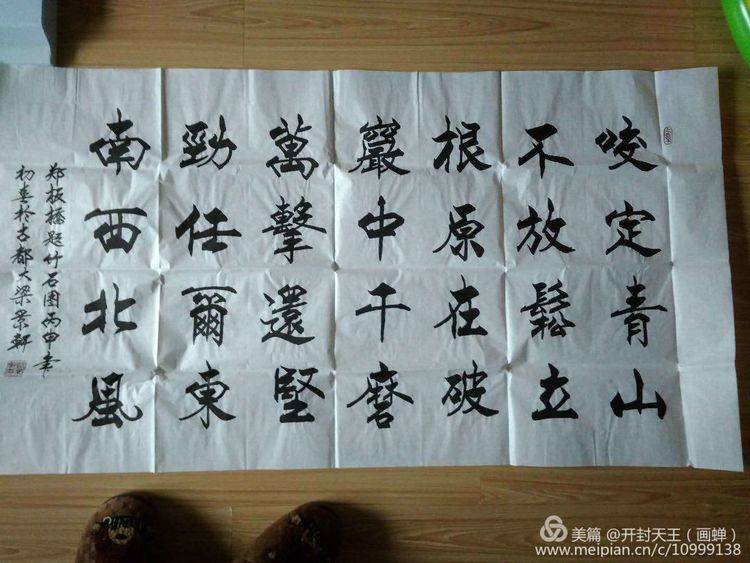 咬定青山
不放鬆立
根原在破
巖中千磨
萬擊還堅
勁任爾東
南西北風
郑板橋题竹石图丙申年
初春於古都大梁
美篇 @开封天王（画蝉）
www.meipian.cn/c/10999138